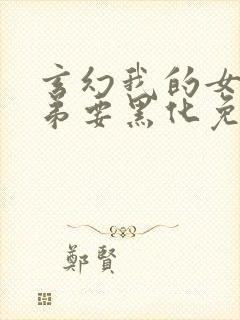 玄幻我的女
弟要黑化免
鄭賢